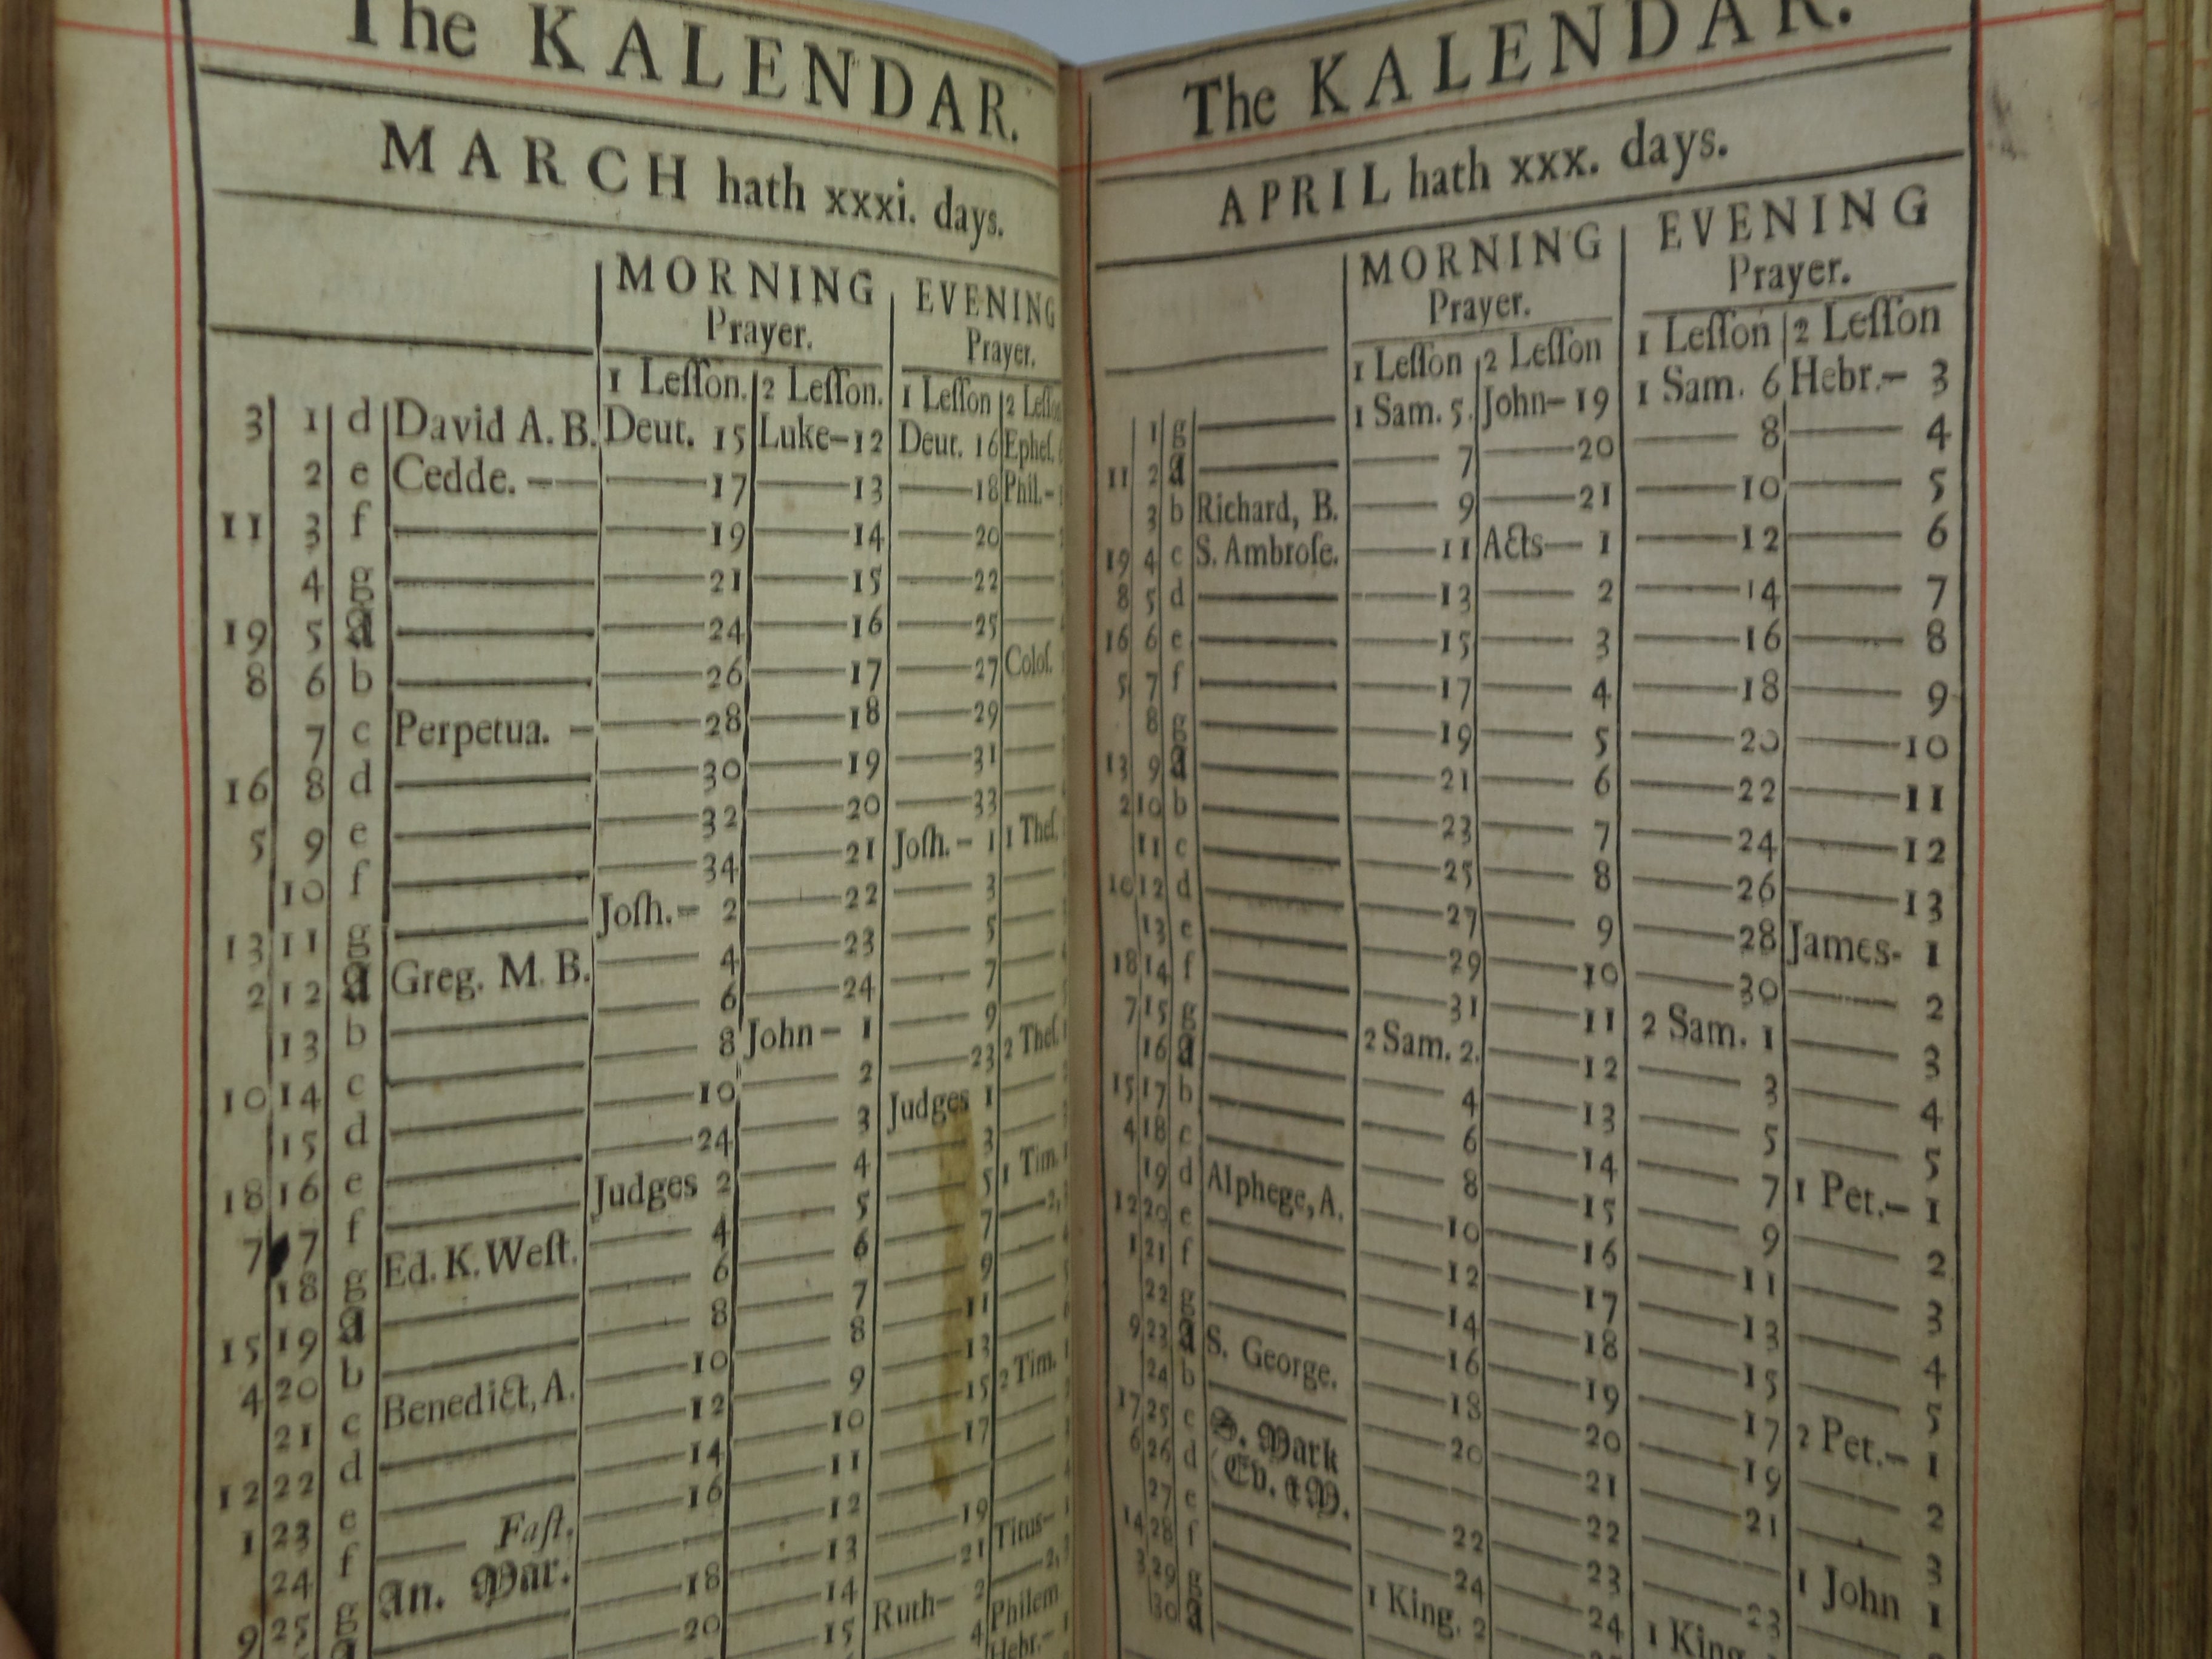 The KALENDAR.
MARCH hath xxxi. days.
MORNING Prayer. EVENING Prayer.
1 Leſſon. 2 Leſſon. 1 Leſſon 2 Leſſo
3 1 d David A. B. Deut. 15 Luke–12 Deut. 16 Epheſ.
2 e Cedde. — 17 13 18 Phil.–
11 3 f 19 14 20
4 g 21 15 22
19 5 a 24 16 25
8 6 b 26 17 27 Coloſ.
7 c Perpetua. – 28 18 29
16 8 d 30 19 31
5 9 e 32 20 33
10 f 34 21 Joſh.– 1 1 Theſ.
13 11 g Joſh.– 2 22 3
2 12 a Greg. M. B. 4 23 5
13 b 6 24 7
10 14 c 8 John– 1 9
15 d 10 2 23 2 Theſ.
18 16 e 24 3 Judges 1
7 7 f Judges 2 4 3
18 g Ed. K. Weſt. 4 5 5 1 Tim.
15 19 a 6 6 7 2,
4 20 b 8 7 9
21 c Benedict, A. 10 8 11
12 22 d 12 9 13
1 23 e 14 10 15 2 Tim.
24 f — Faſt. 16 11 17
9 25 g An. Mar. 12
18 13 19 Titus–
20 14 21 2,
15 Ruth– 2 Philem
4 Hebr.–
The KALENDAR.
APRIL hath xxx. days.
MORNING Prayer. EVENING Prayer.
1 Leſſon 2 Leſſon 1 Leſſon 2 Leſſon
1 g 1 Sam. 5. John–19 1 Sam. 6 Hebr.– 3
11 2 a 7 20 8 4
3 b Richard, B. 9 21 10 5
19 4 c S. Ambroſe. 11 Acts— 1 12 6
8 5 d 13 2 14 7
16 6 e 15 3 16 8
5 7 f 17 4 18 9
8 g 19 5 20 10
13 9 a 21 6 22 11
2 10 b 23 7 24 12
11 c 25 8 26 13
10 12 d 27 9 28 James- 1
13 e 29 10 30 2
18 14 f 31 11 2 Sam. 1 3
7 15 g 2 Sam. 2. 12 3 4
16 a 4 13 5 5
15 17 b 6 14 7 1 Pet.– 1
4 18 c 8 15 9 2
19 d Alphege, A. 10 16 11 3
12 20 e 12 17 13 4
1 21 f 14 18 15 5
22 g 16 19 17 2 Pet.– 1
9 23 a S. George. 18 20 19 2
24 b 20 21 21 3
17 25 c S. Mark 22 22 23 1 John 1
6 26 d (Ev. & M. 24 23 1 King.
27 e 1 King. 2 24
14 28 f
3 29 g
30 a